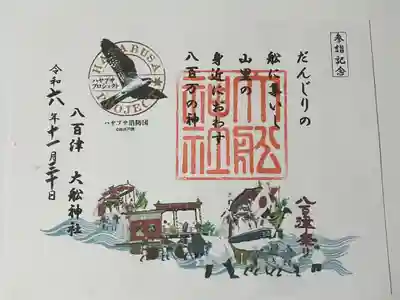 参詣記念
だんじりの
舩に集いし
山里の
身近におわす
八百万の神
大舩神社
HAYABUSA
ハヤブサ
プロジェクト
PROJECT
ハヤブサ消防団
八百津 大舩神社
令和六年十一月三十日
八百津祭り